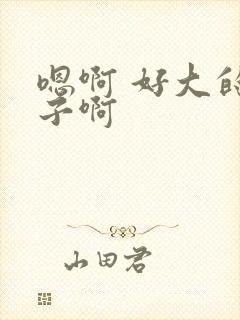 嗯啊 好大的
子啊
山田君